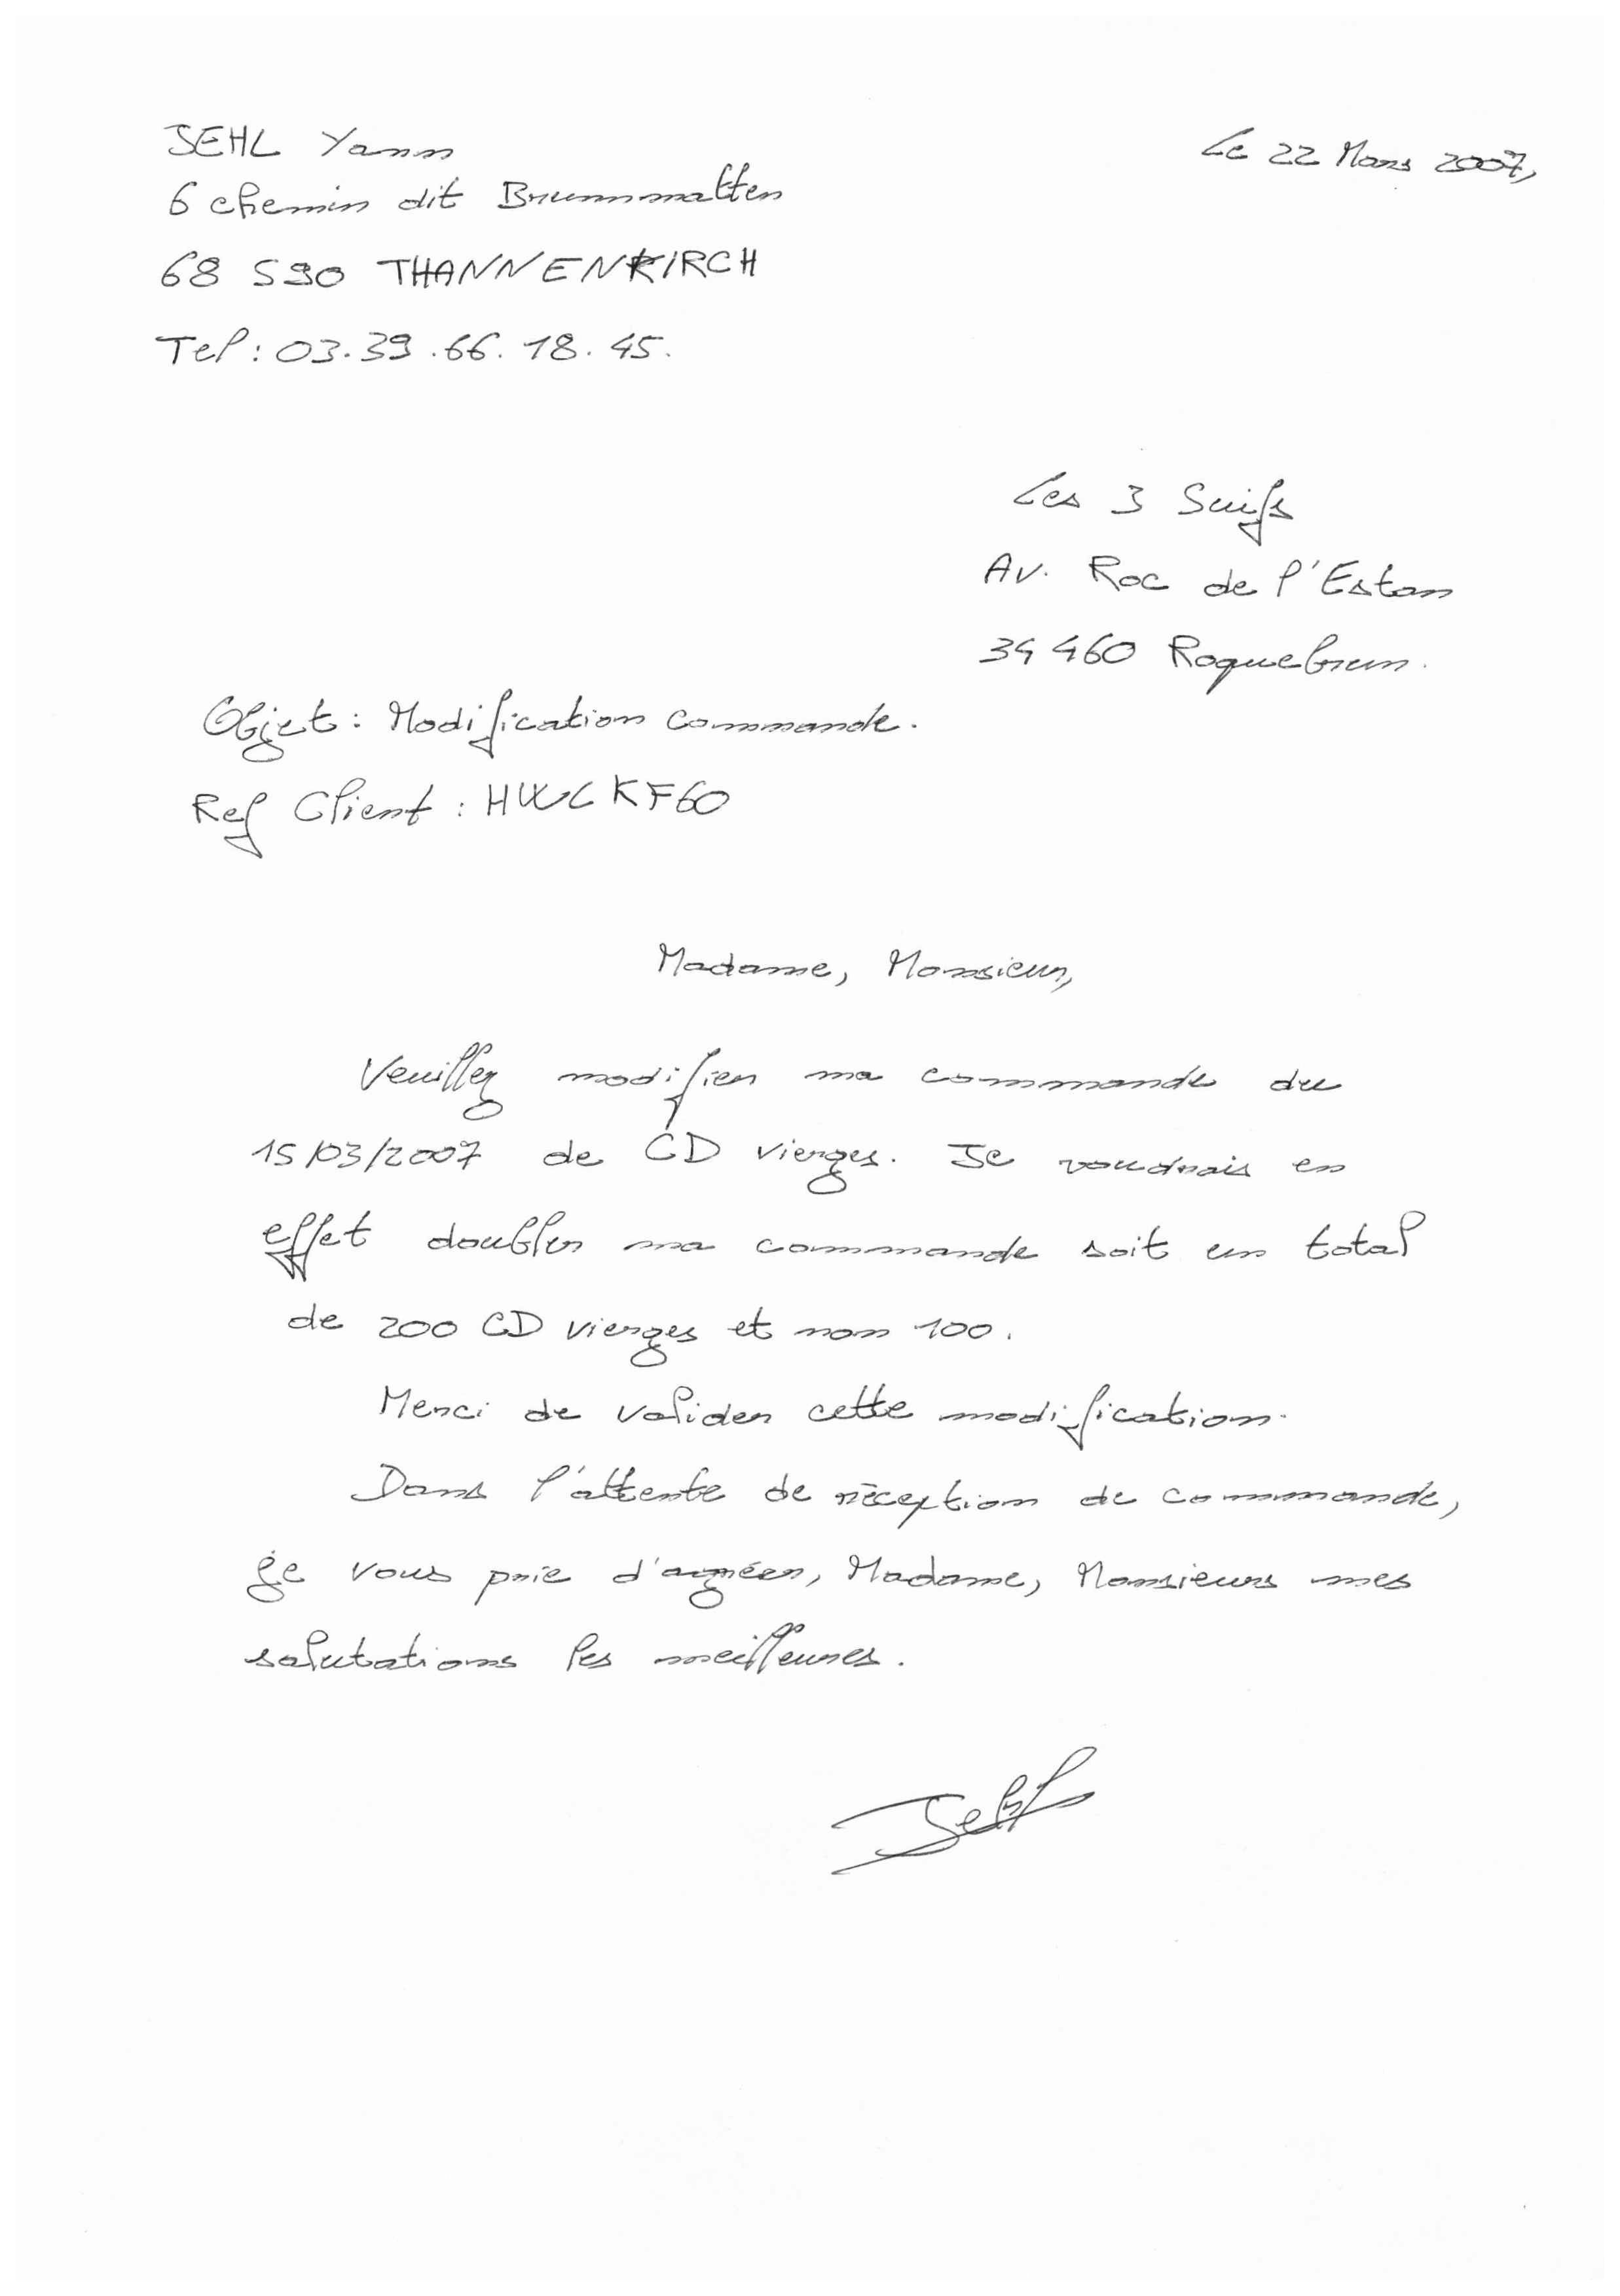 JEHL Yann
Le 22 Mars 2007,
6 chemin dit Brunnmatten
68 590 THANNENKIRCH
Tel : 03.39.66.18.45.
Les 3 Suifs
Av. Roc de l'Estan
34 460 Roquebrun.
Objet : Modification commande.
Ref Client : HWLKF60
Madame, Monsieur,
Veuillez modifier ma commande du
15/03/2007 de CD vierges. Je voudrais en
effet doubler ma commande soit un total
de 200 CD vierges et non 100.
Merci de valider cette modification.
Dans l'attente de réception de commande,
je vous prie d'agréer, Madame, Monsieurs mes
salutations les meilleures.
Jehl